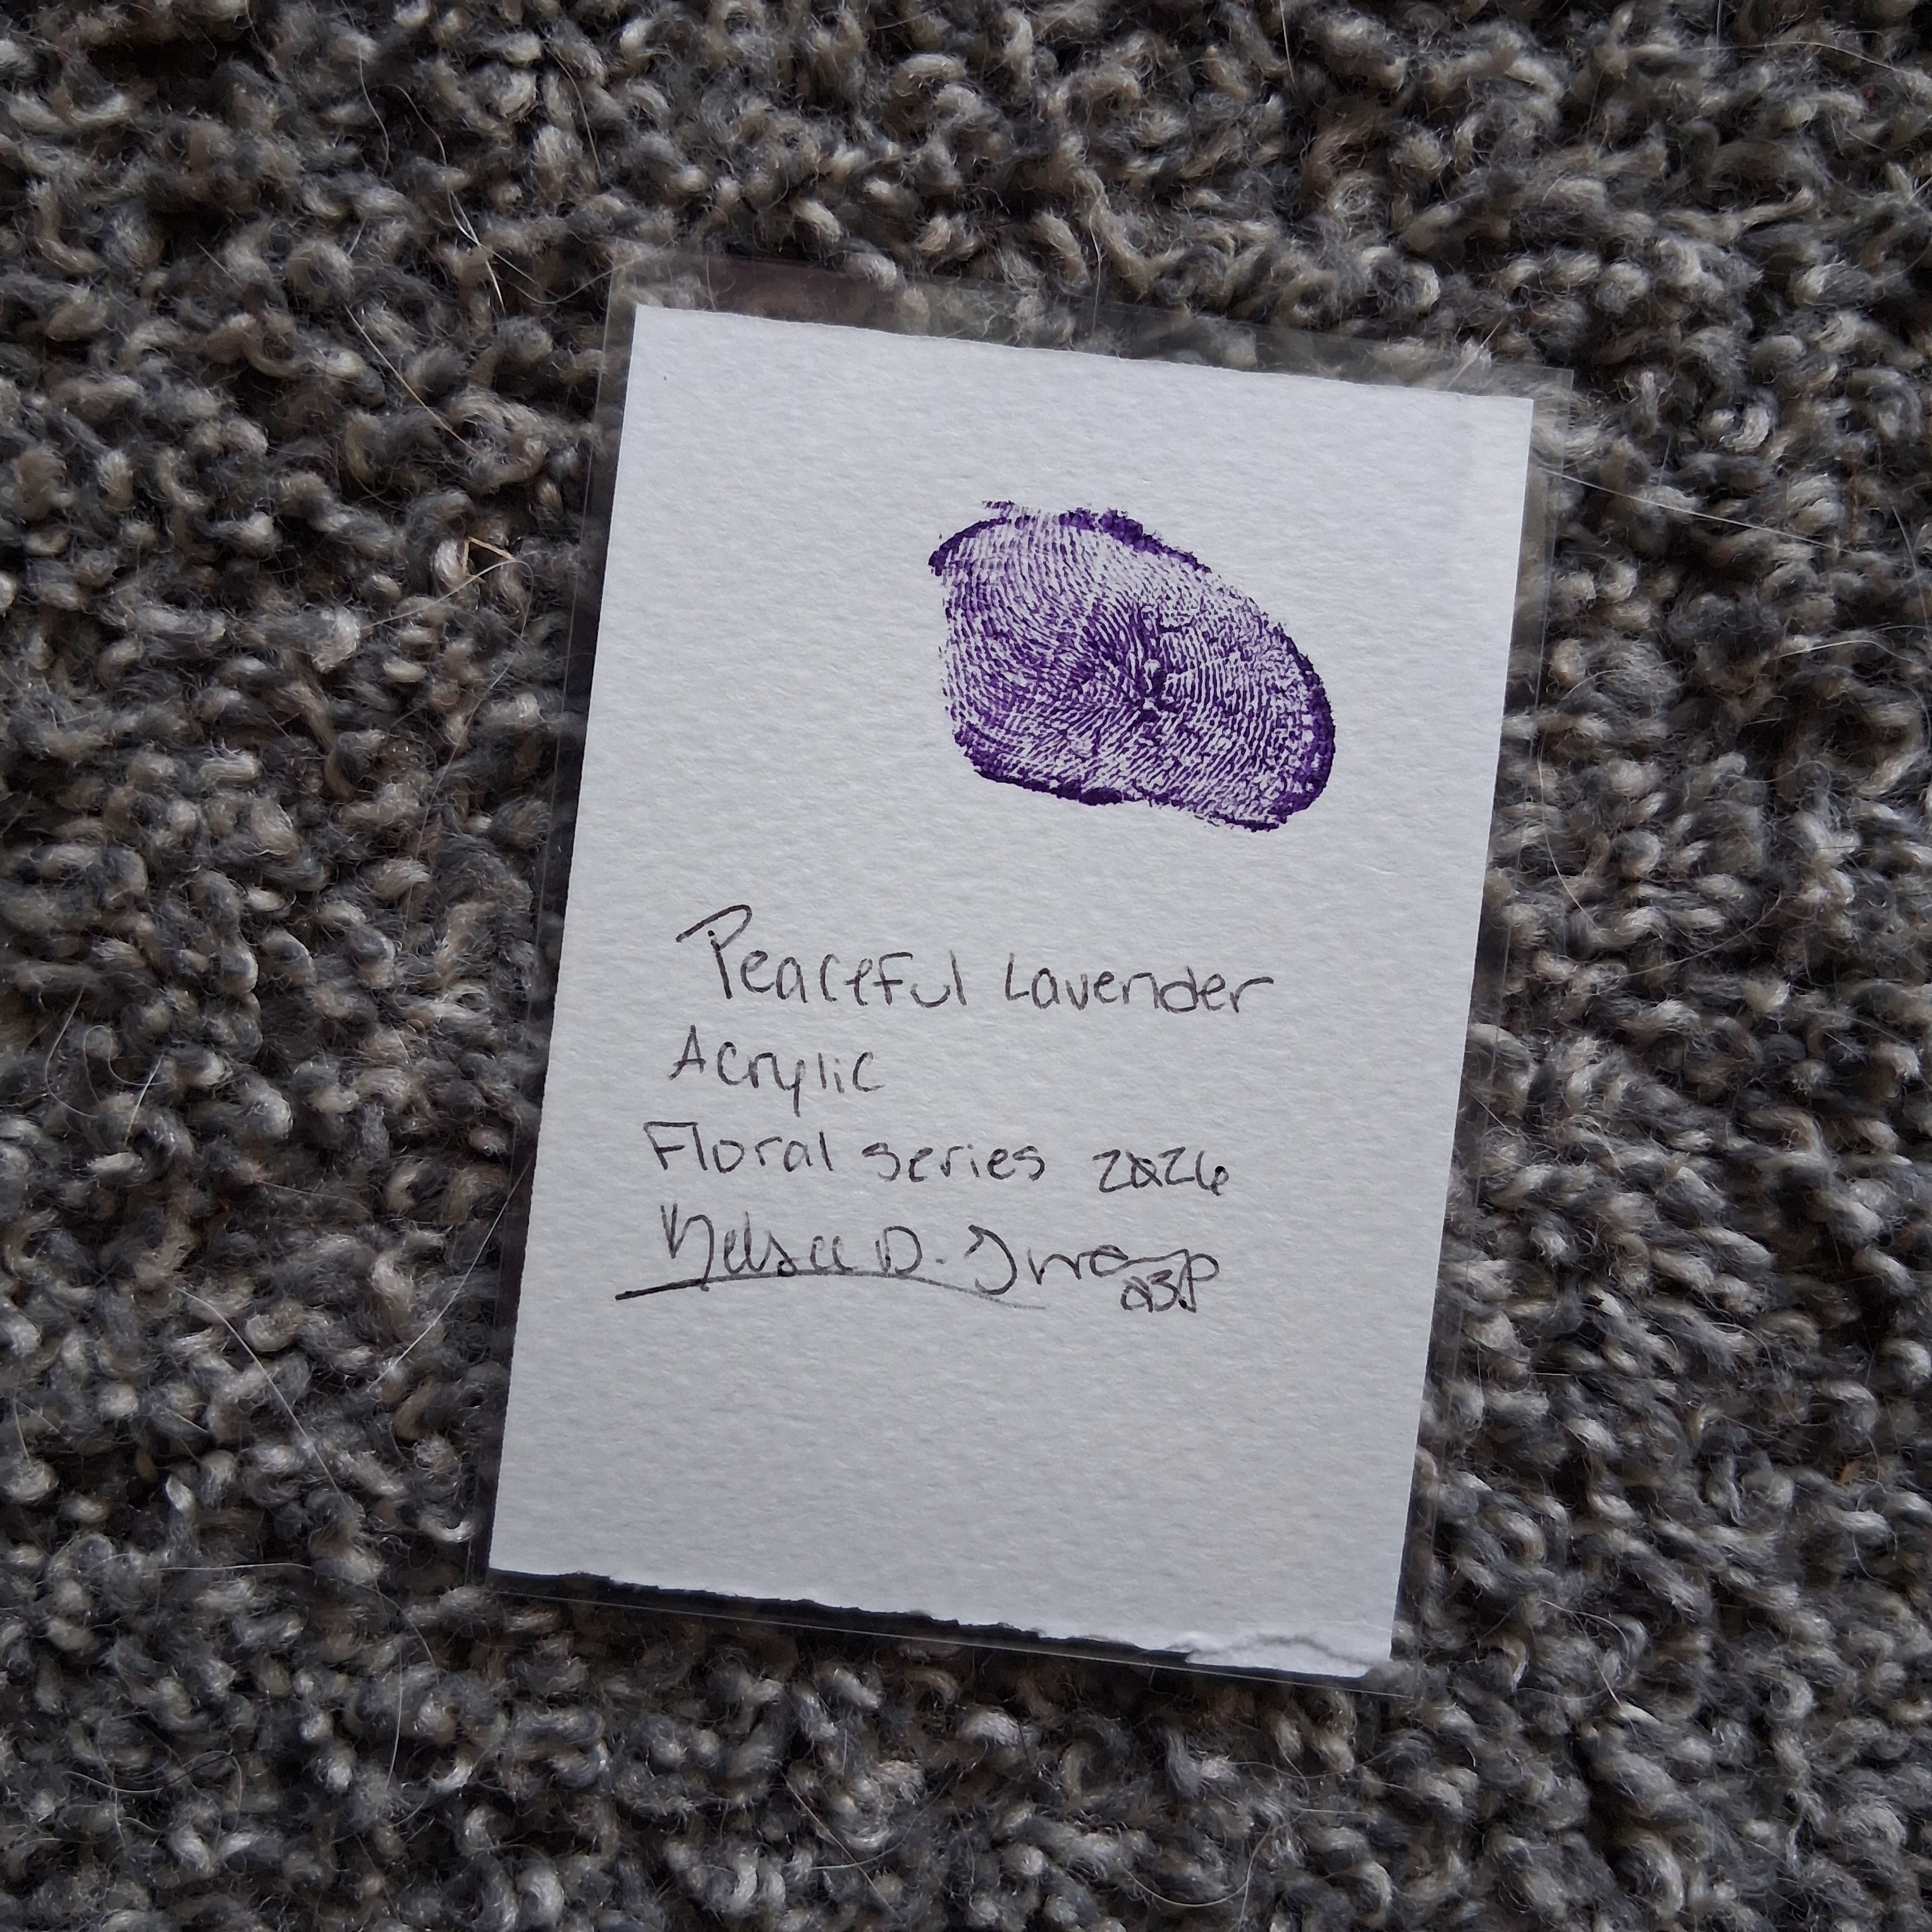 Peaceful Lavender
Acrylic
Floral series 2026
Kelsee D.